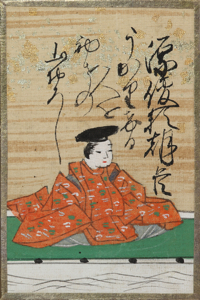 源俊頼朝臣
うか里ける
人を
初せの
山おろし